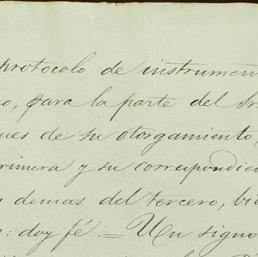 protocolo de instrumen
o, para la parte del Sr
ues de su otorgamiento,
rimera y su correspondien
y demas del tercero, bie
: doy fé. = Un signo